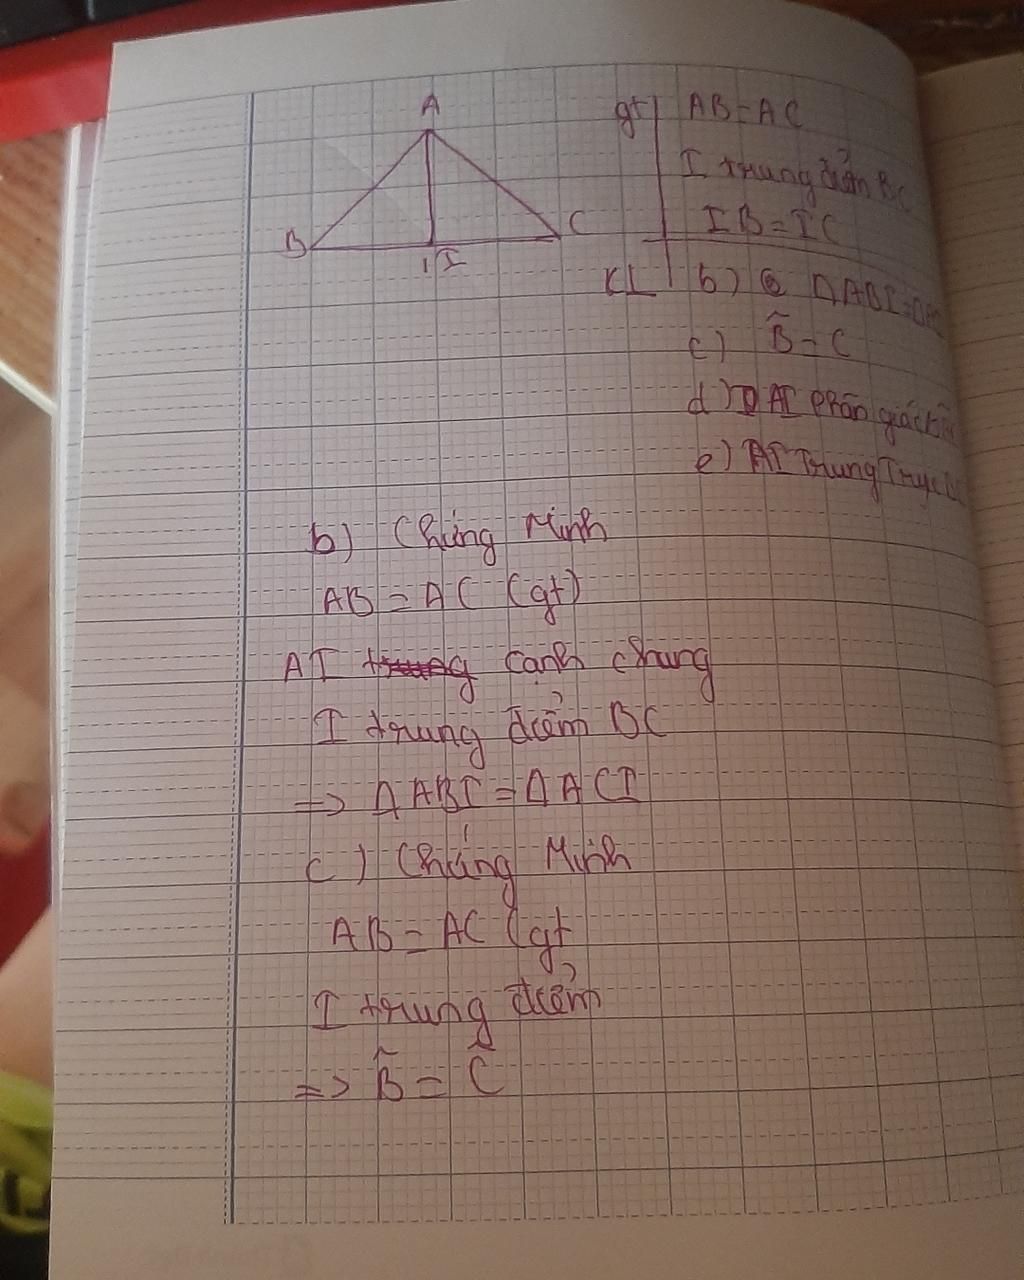 A
B
C
I
gt
AB = AC
I trung điểm BC
IB = IC
KL
b) ΔABI = Δ
c) B̂ = C
d) AI phân giác
e) AI Trung Trực
b) Chứng Minh
AB = AC (gt)
AI cạnh chung
I trung điểm BC
=> ΔABI = ΔACI
c) Chứng Minh
AB = AC (gt
I trung điểm
=> B̂ = Ĉ